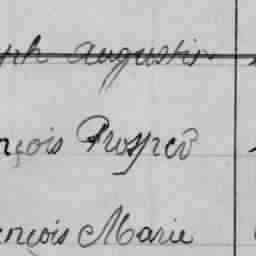 ph Augustin
nçois Prosper
ençois Marie